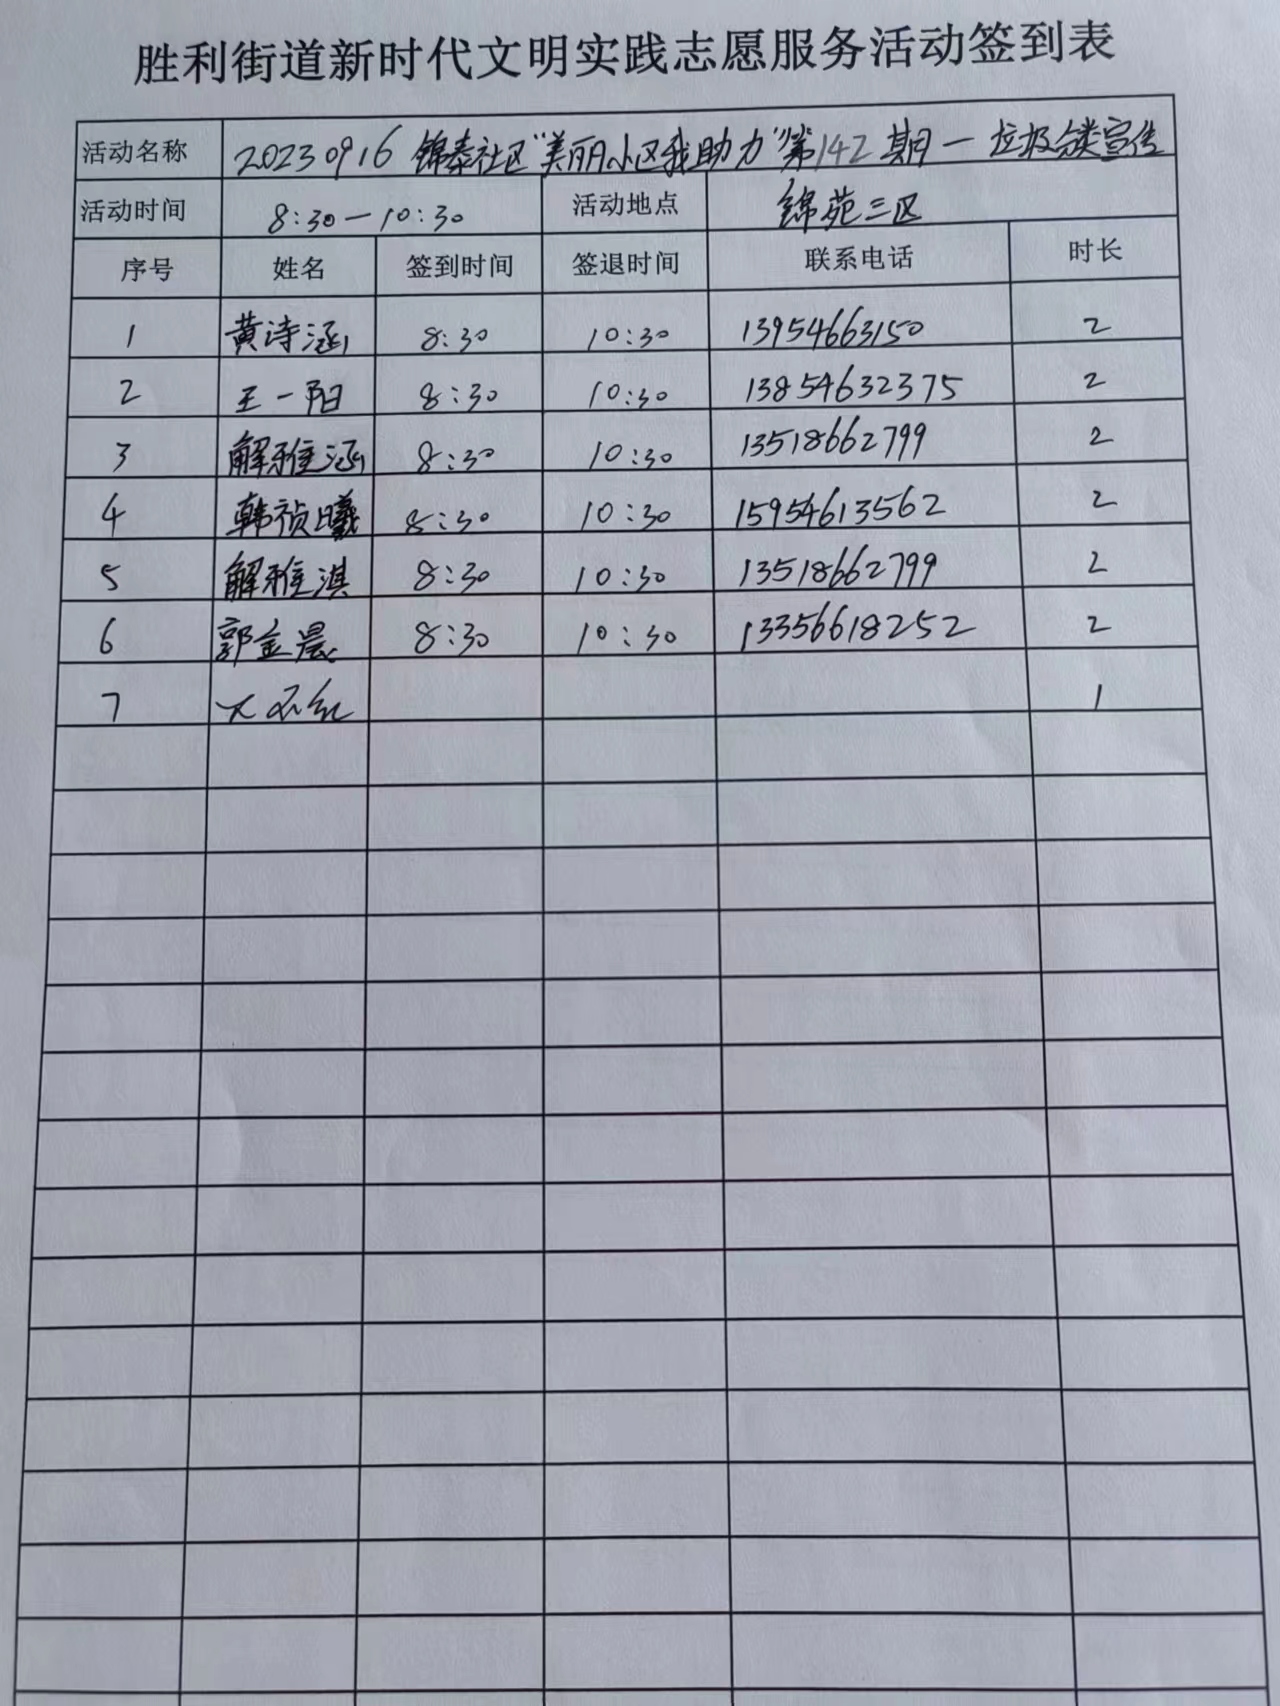 胜利街道新时代文明实践志愿服务活动签到表
活动名称 20230916 锦泰社区"美丽小区我助力"第142期—垃圾分类宣传
活动时间 8:30—10:30 活动地点 锦苑三区
序号 姓名 签到时间 签退时间 联系电话 时长
1 黄诗涵 8:30 10:30 13954663150 2
2 王一阳 8:30 10:30 13854632375 2
3 解雅涵 8:30 10:30 13518662799 2
4 韩祯曦 8:30 10:30 15954613562 2
5 解雅淇 8:30 10:30 13518662799 2
6 郭金晨 8:30 10:30 13356618252 2
7 1